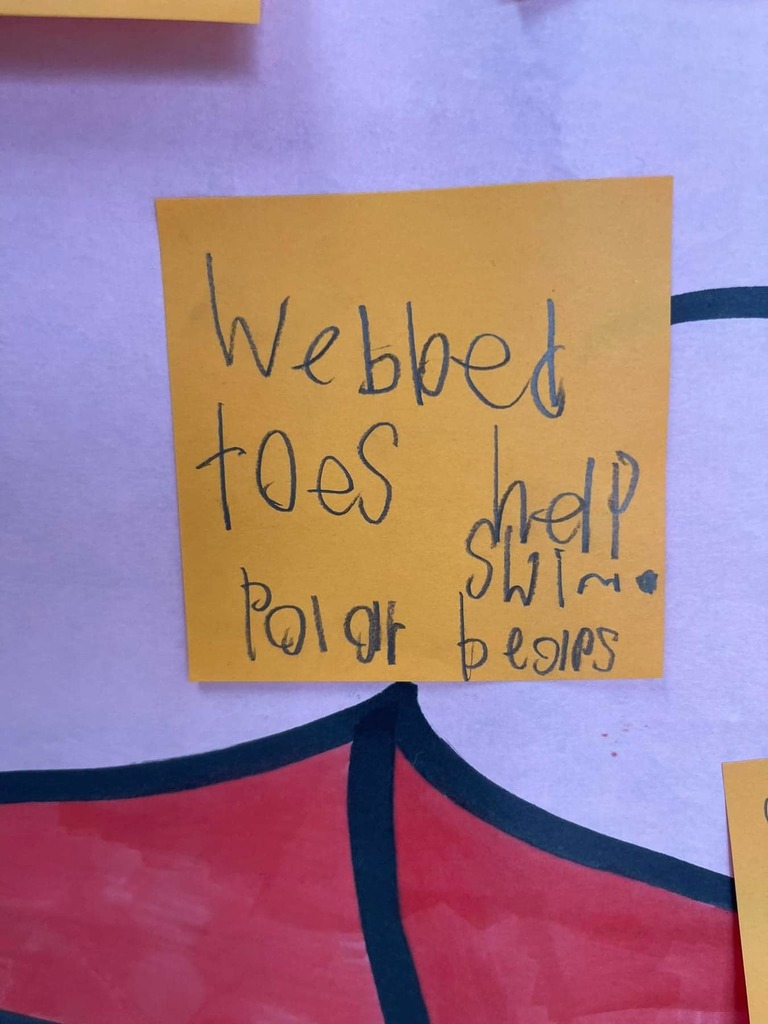 Webbed
toes help
swim.
Polar